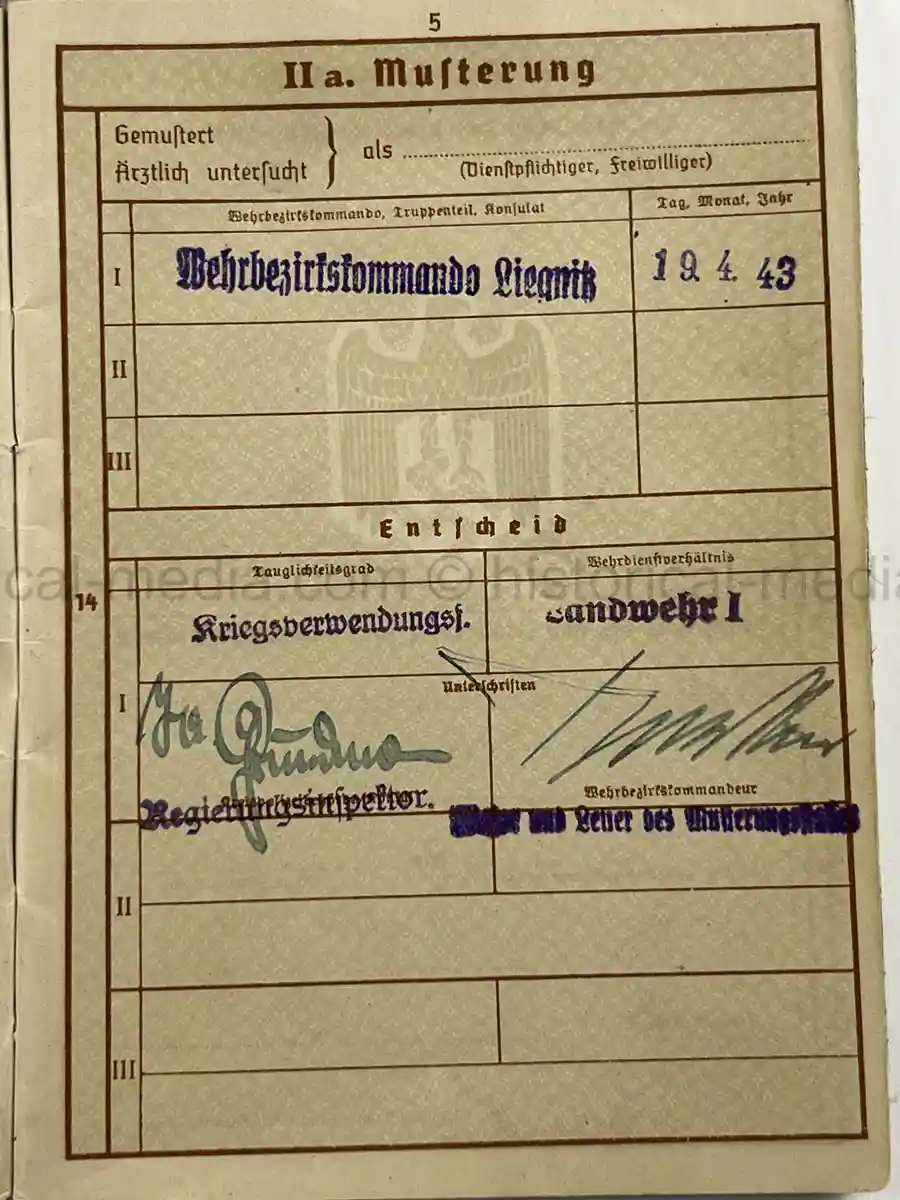 5
II a. Musterung
Gemustert
Ärztlich untersucht
als
(Dienstpflichtiger, Freiwilliger)
Wehrbezirkskommando, Truppenteil, Konsulat
Tag, Monat, Jahr
I
Wehrbezirkskommando Liegnitz
19. 4. 43
II
III
Entscheid
Tauglichkeitsgrad
Wehrdienstverhältnis
14
Kriegsverwendungsf.
Landwehr I
I
Unterschriften
Regierungsinspektor.
Wehrbezirkskommandeur
Major und Leiter des Musterungsstabes
II
III
cal-media.com © historical-media